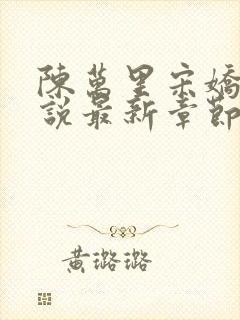 陳萬里宋嬌
說最新章節
黃璐璐